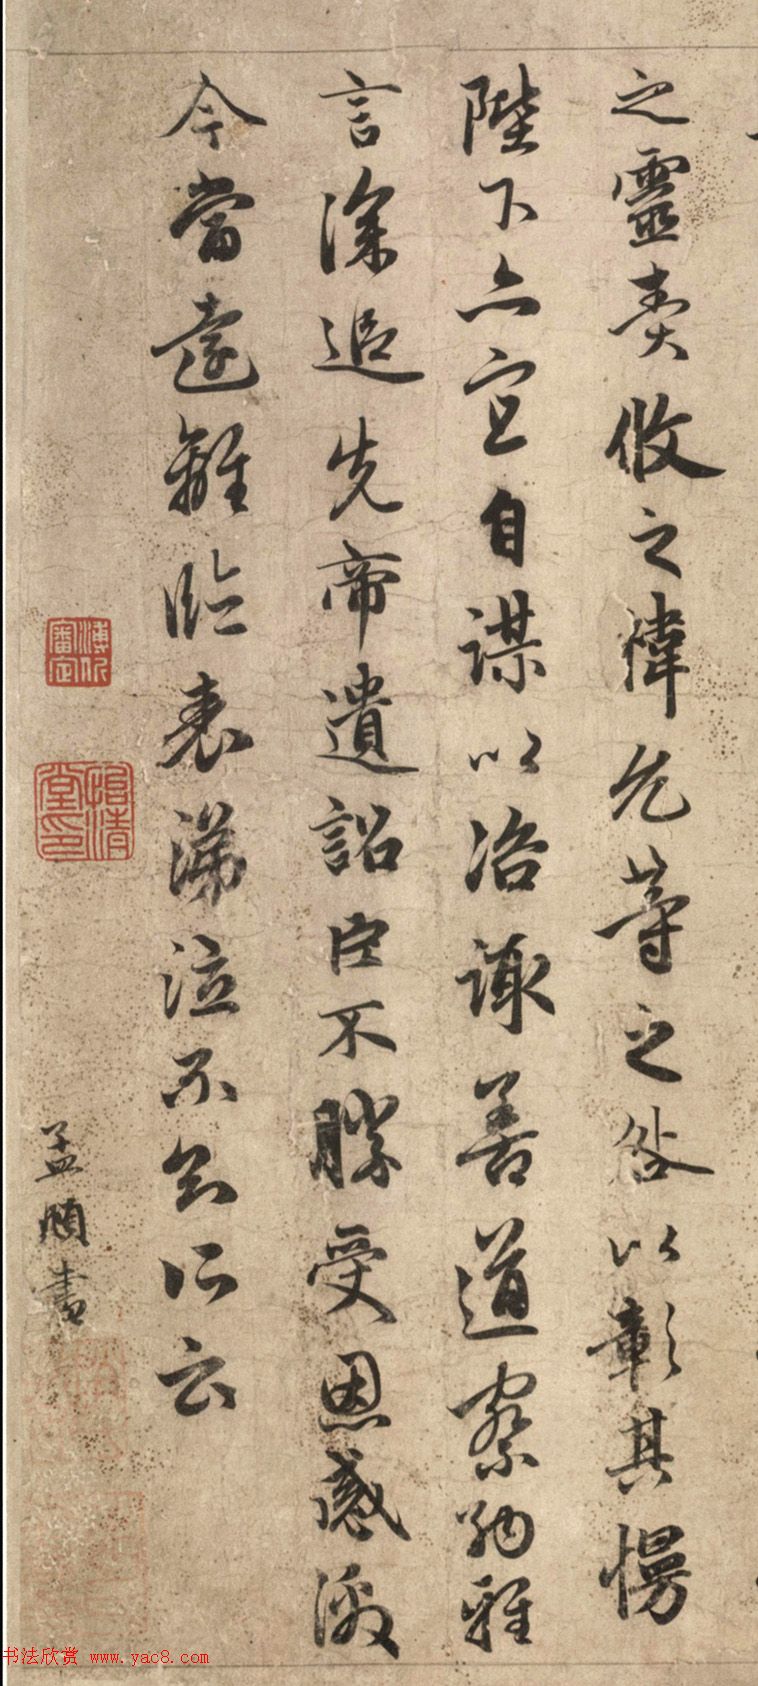 之靈責攸之禕允等之咎以彰其慢
陛下亦宜自謀以咨諏善道察納雅
言深追先帝遺詔臣不勝受恩感激
今當遠離臨表涕泣不知所云
孟頫書
審定
书法欣赏 www.yac8.com